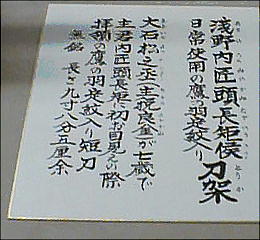 浅野内匠頭長矩侯 刀架
日常使用の鷹の羽定紋入り
大石松之丞主税良金が七歳で
主君内匠頭長矩に初お目見えの際
拝領の鷹の羽定紋入り短刀
無銘 長さ九寸八分五厘余